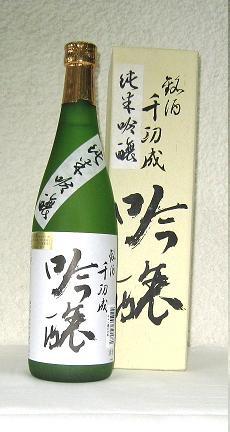 純米吟醸
銘酒
千羽成
吟醸
純米吟醸
銘酒
千羽成
吟醸